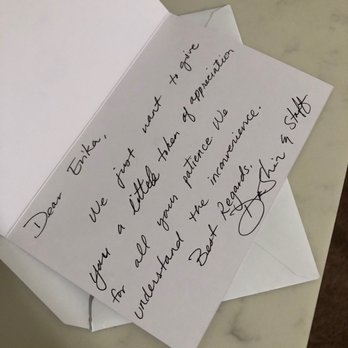 Dear Erika,
We just want to give
you a little token of appreciation
for all your patience. We
understand the inconvenience.
Best Regards,
& Staff